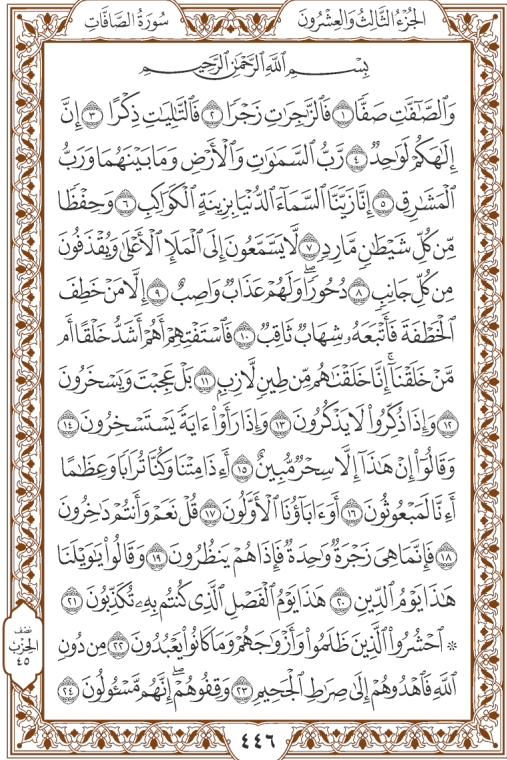 الجُزْءُ الثَّالِثُ وَالعِشْرُونَ
سُورَةُ الصَّافَّاتِ
بِسْمِ ٱللَّهِ ٱلرَّحْمَٰنِ ٱلرَّحِيمِ
وَٱلصَّٰٓفَّٰتِ صَفًّا ١ فَٱلزَّٰجِرَٰتِ زَجْرًا ٢ فَٱلتَّٰلِيَٰتِ ذِكْرًا ٣ إِنَّ
إِلَٰهَكُمْ لَوَٰحِدٌ ٤ رَّبُّ ٱلسَّمَٰوَٰتِ وَٱلْأَرْضِ وَمَا بَيْنَهُمَا وَرَبُّ
ٱلْمَشَٰرِقِ ٥ إِنَّا زَيَّنَّا ٱلسَّمَآءَ ٱلدُّنْيَا بِزِينَةٍ ٱلْكَوَاكِبِ ٦ وَحِفْظًا
مِّن كُلِّ شَيْطَٰنٍ مَّارِدٍ ٧ لَّا يَسَّمَّعُونَ إِلَى ٱلْمَلَإِ ٱلْأَعْلَىٰ وَيُقْذَفُونَ
مِن كُلِّ جَانِبٍ ٨ دُحُورًا ۖ وَلَهُمْ عَذَابٌ وَاصِبٌ ٩ إِلَّا مَنْ خَطِفَ
ٱلْخَطْفَةَ فَأَتْبَعَهُۥ شِهَابٌ ثَاقِبٌ ١٠ فَٱسْتَفْتِهِمْ أَهُمْ أَشَدُّ خَلْقًا أَم
مَّنْ خَلَقْنَآ ۚ إِنَّا خَلَقْنَٰهُم مِّن طِينٍ لَّازِبٍۭ ١١ بَلْ عَجِبْتَ وَيَسْخَرُونَ
١٢ وَإِذَا ذُكِّرُوا۟ لَا يَذْكُرُونَ ١٣ وَإِذَا رَأَوْا۟ ءَايَةً يَسْتَسْخِرُونَ ١٤
وَقَالُوٓا۟ إِنْ هَٰذَآ إِلَّا سِحْرٌ مُّبِينٌ ١٥ أَءِذَا مِتْنَا وَكُنَّا تُرَابًا وَعِظَٰمًا
أَءِنَّا لَمَبْعُوثُونَ ١٦ أَوَءَابَآؤُنَا ٱلْأَوَّلُونَ ١٧ قُلْ نَعَمْ وَأَنتُمْ دَٰخِرُونَ
١٨ فَإِنَّمَا هِىَ زَجْرَةٌ وَٰحِدَةٌ فَإِذَا هُمْ يَنظُرُونَ ١٩ وَقَالُوا۟ يَٰوَيْلَنَا
هَٰذَا يَوْمُ ٱلدِّينِ ٢٠ هَٰذَا يَوْمُ ٱلْفَصْلِ ٱلَّذِى كُنتُم بِهِۦ تُكَذِّبُونَ ٢١
۞ ٱحْشُرُوا۟ ٱلَّذِينَ ظَلَمُوا۟ وَأَزْوَٰجَهُمْ وَمَا كَانُوا۟ يَعْبُدُونَ ٢٢ مِن دُونِ
ٱللَّهِ فَٱهْدُوهُمْ إِلَىٰ صِرَٰطِ ٱلْجَحِيمِ ٢٣ وَقِفُوهُمْ ۖ إِنَّهُم مَّسْـُٔولُونَ ٢٤
نصف
الحزب
٤٥
٤٤٦